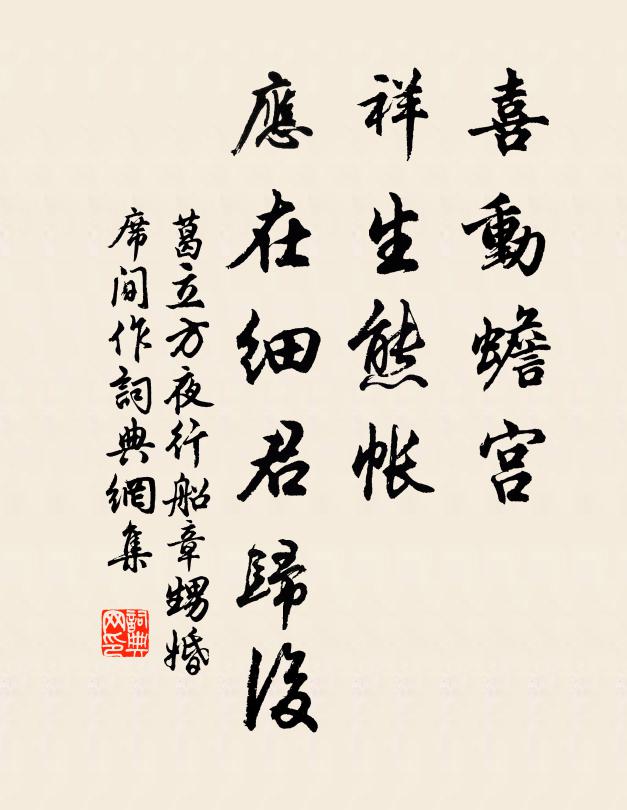 喜動蟾宮
祥生熊帐
應在細君歸後
葛立方夜行船章甥婚
席间作詞典網集
詞典网印